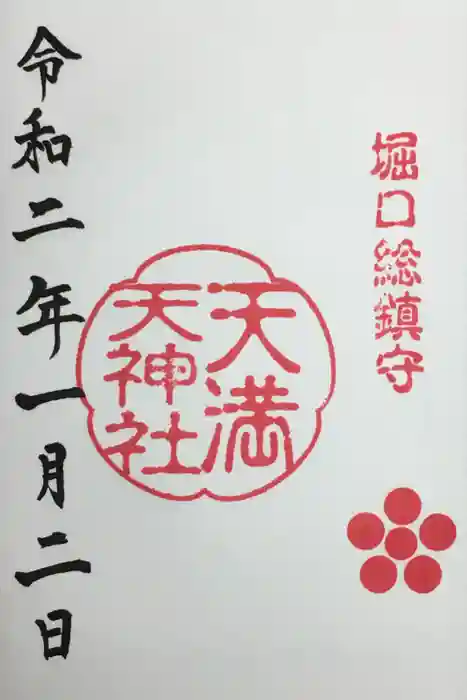 堀口総鎮守
天満
天神社
令和二年一月二日